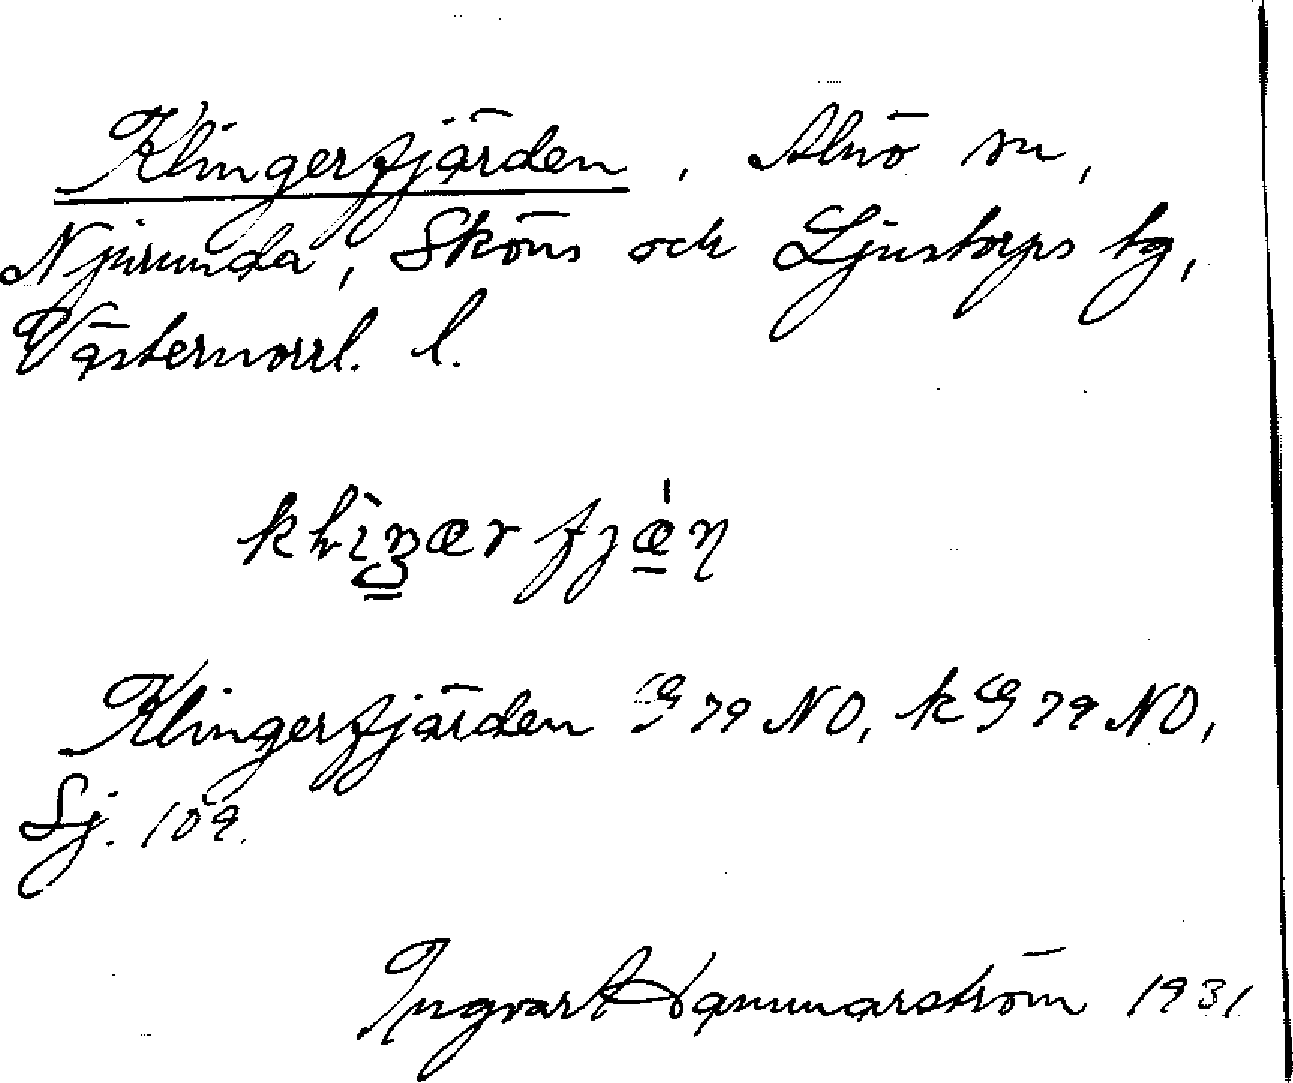 Klingerfjärden, Alnö sn,
Njurunda, Sköns och Ljustorps tg,
Västernorrl. l.
Klingerfjärden G 79 NO, kG 79 NO,
Sj. 109.
Ingvar Hammarström 1931